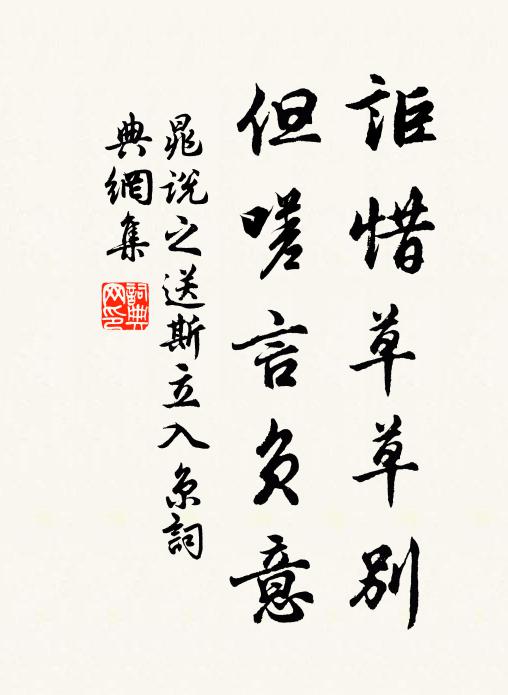 詎惜草草別
但嗟言負意
晁說之送斯立入京詞
典網集
詞典
网印